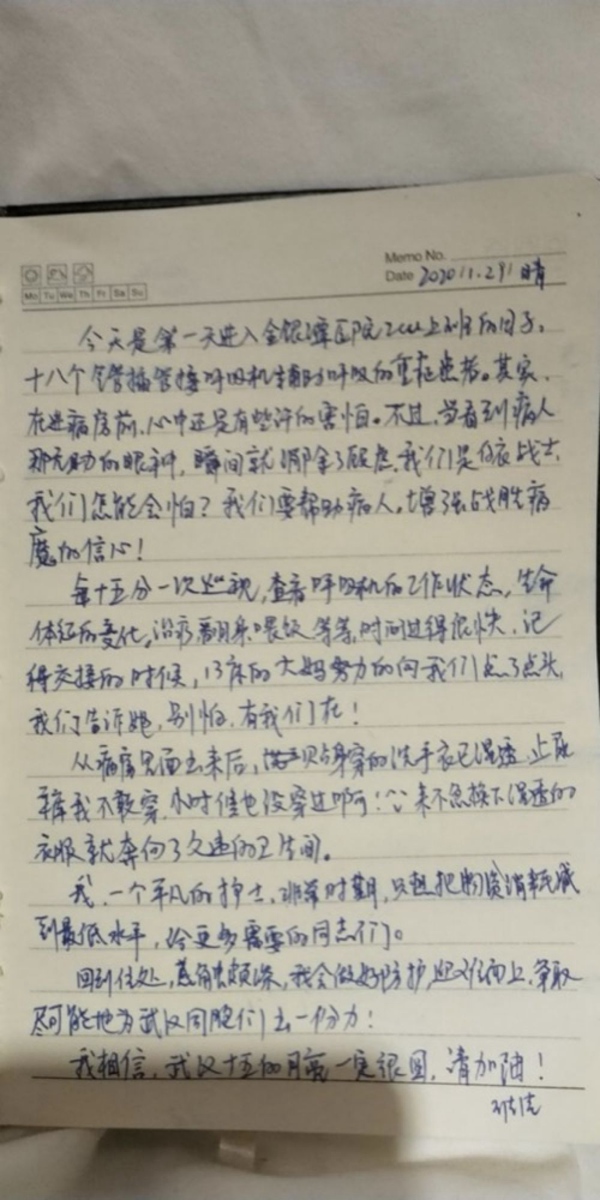 Memo No.
Date 2020.1.29 晴
Mo Tu We Th Fr Sa Su
今天是第一天进入金银潭医院ICU上班的日子,
十八个全管插管接呼吸机辅助呼吸的重症患者。其实,
在进病房前,心中还是有些许的害怕。不过,当看到病人
那无助的眼神,瞬间就消除了顾虑,我们是白衣战士,
我们怎能会怕?我们要帮助病人,增强战胜病
魔的信心!
每十五分一次巡视,查看呼吸机的工作状态,生命
体征的变化,治疗翻身喂饮等等,时间过得很快,记
得交接的时候,13床的大妈努力的向我们点了点头,
我们告诉她,别怕,有我们在!
从病房里面出来后,贴身穿的洗手衣已湿透,
裤我不敢穿,小时候也没穿过啊!来不急换下湿透的
衣服就奔向了久违的卫生间。
我,一个平凡的护士,非常时期,只想把物资消耗减
到最低水平,给更多需要的同志们。
回到住处,我会做好防护,迎难而上,争取
尽可能地为武汉同胞们出一份力!
我相信,武汉十五的月亮一定很圆,请加油!